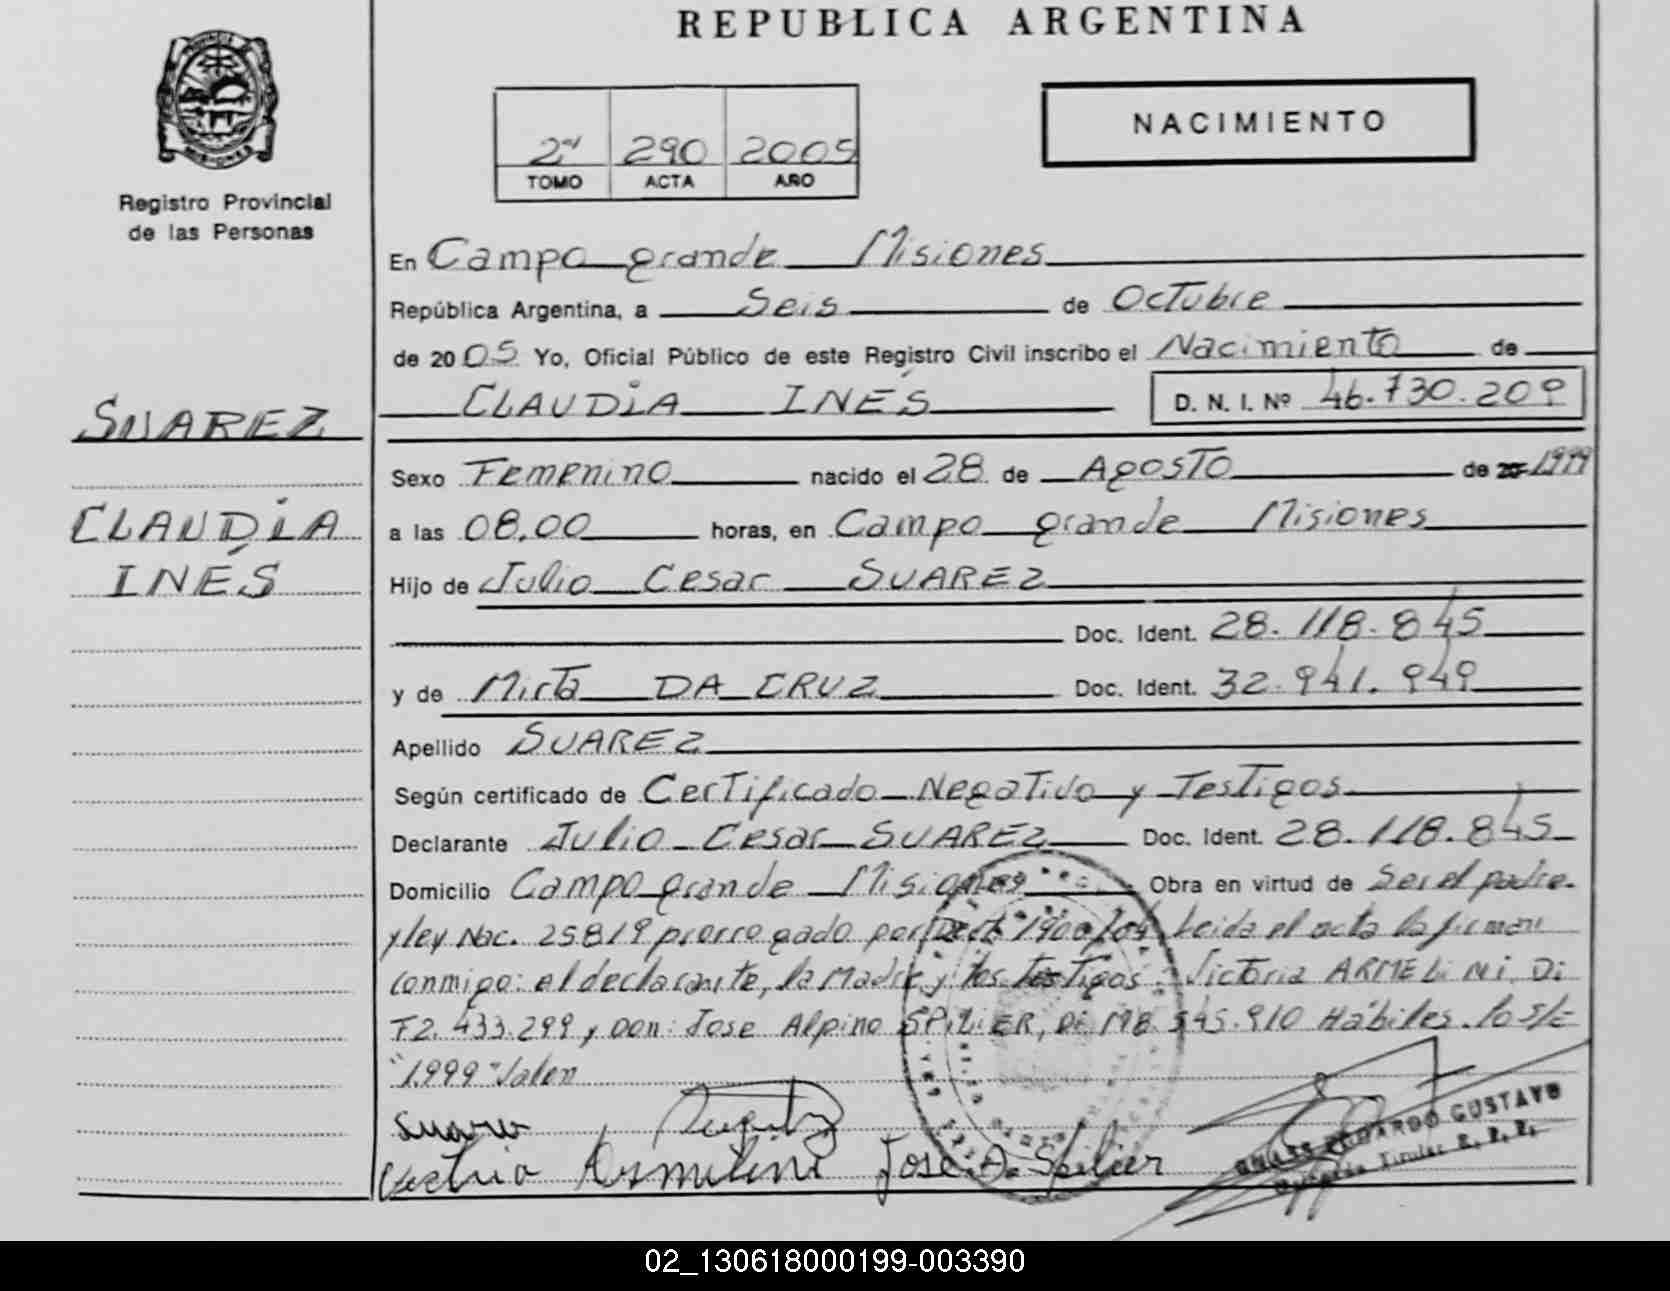 REPUBLICA ARGENTINA
PROVINCIA DE MISIONES
Registro Provincial
de las Personas
2º 290 2005
TOMO ACTA AÑO
NACIMIENTO
En Campo grande Misiones
República Argentina, a Seis de Octubre
de 2005 Yo, Oficial Público de este Registro Civil inscribo el Nacimiento de
CLAUDIA INÉS D. N. I. Nº 46.730.209
SUAREZ
CLAUDIA
INÉS
Sexo Femenino nacido el 28 de Agosto de 20 1999
a las 08,00 horas, en Campo grande Misiones
Hijo de Julio Cesar SUAREZ
Doc. Ident. 28.118.845
y de Mirta DA CRUZ Doc. Ident. 32.941.949
Apellido SUAREZ
Según certificado de Certificado Negativo y Testigos
Declarante Julio Cesar SUAREZ Doc. Ident. 28.118.845
Domicilio Campo grande Misiones Obra en virtud de Ser el padre.
y ley Nac. 25819 prorrogado por Dect. 1900/04 Leida el acta la firman
conmigo: el declarante, la Madre y los testigos: Victoria ARMELiNi, Di
F2.433.299 y Don: Jose Alpino SPiLiER, Di M8.545.910 Hábiles. lo s/E
"1999" Valen
Suarez
Victria Armelini Jose A. Spilier
EDUARDO GUSTAVO
Titular R. P. P.
02_130618000199-003390